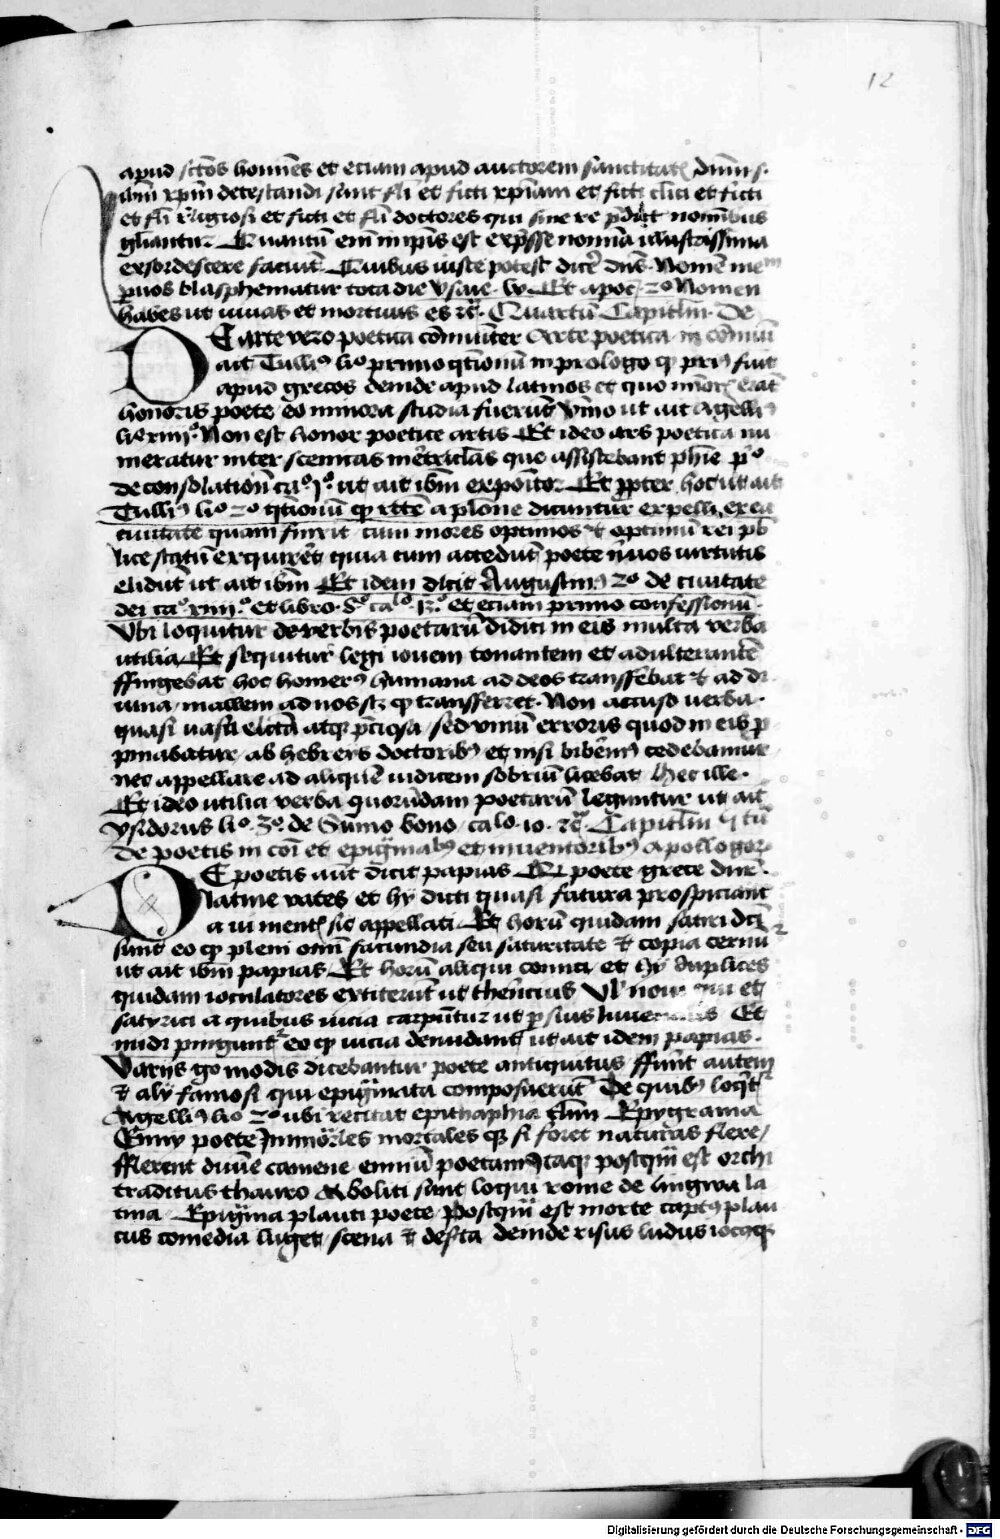 12
apud sctos homines et eciam apud auctorem sanctitatis dnm s.
ihm xpm detestandi sunt fli et ficti xpiani et ficti clici et ficti
et fli religiosi et ficti et fli doctores qui sine re nominibus
gliantur Quantum eni impiis est nomina illustrissima
exsordescere faciunt Quibus iuste potest dicere dns. Nomen meum
p vos blasphematur tota die ysaie. lii Et apoc. 2o Nomen
habes ut vivas et mortuus es rc. Quartum Capitlm. De
DE arte vero poetica communiter Arte poetica in communi
ait Tullius lio primo qtionum in prologo qp prius fuit
apud grecos deinde apud latinos et quo minor erat
honoris poete eo minora studia fuerunt ymo ut ait Agellius
lio xiiii.o Non est honor poetice artis Et ideo ars poetica nu
meratur inter scenicas meretriclas que assistebant phie po
de consolatione cao 1o ut ait ibm expositor Et ppter hoc ut ait
Tullius lio 2o qtionum qp recte a platone dicuntur expelli ex ea
civitate quam finxit cum mores optimos et optimum rei pb
lice statum exquireret quia cum accedunt poete nervos virtutis
elidunt ut ait ibm Et idem dicit Augustinus 2o de civitate
dei cao xiiii.o et libro 8o calo 13.o et eciam primo confessionum.
Ubi loquitur de verbis poetarum didici in eis multa verba
utilia Et sequitur legi iovem tonantem et adulterantem
ffingebat hoc homerus humana ad deos transferebat et ad di
vina mallem ad nos scz qp transferret. Non accuso verba.
quasi vasa electa atqz preciosa sed vinum erroris quod in eis p
pinabatur ab hebreis doctoribus et nisi biberemus cedebamur
nec appellare ad aliquem iudicem sobrium licebat Hec ille.
Et ideo utilia verba quorundam poetarum leguntur ut ait
ysidorus lio. 3o. de Summo bono calo. 10. rc. Capitlm qtu
De poetis in coi et epigmabus et inventoribus apollogor
DE poetis aut dicit papias Qp poete grece dicuntur
latine vates et hy dicti quasi futura prospiciant
a vi mentis sic appellati Et horum quidam satiri dci
sunt eo qp pleni omni facundia seu saturitate et copia
ut ait ibm papias Et horum aliqui comici et hy duplices
quidam ioculatores extiterunt ut therencius Ul novi qui et
satyrici a quibus vicia carpuntur ut persius Iuvenalis Et
nudi pinguntur eo qp vicia denudant ut ait idem papias.
Varijs go modis dicebantur poete antiquitus ffiunt autem
et alij famosi qui epigmata composuerunt De quibus loqtur
Agellius lio 2o ubi recitat epithaphia Epygrama
Enny poete Inmortales mortales qz si foret naturas flere
fflerent divine camene enniu poetam Itaqz postqm est orchi
traditus thauro Oboliti sunt loqui rome de lingwa la
tina Epigma plauti poete Postqm est morte captus plau
tus comedia luget scena et desta deinde risus ludus iocqz
Digitalisierung gefördert durch die Deutsche Forschungsgemeinschaft - DFG